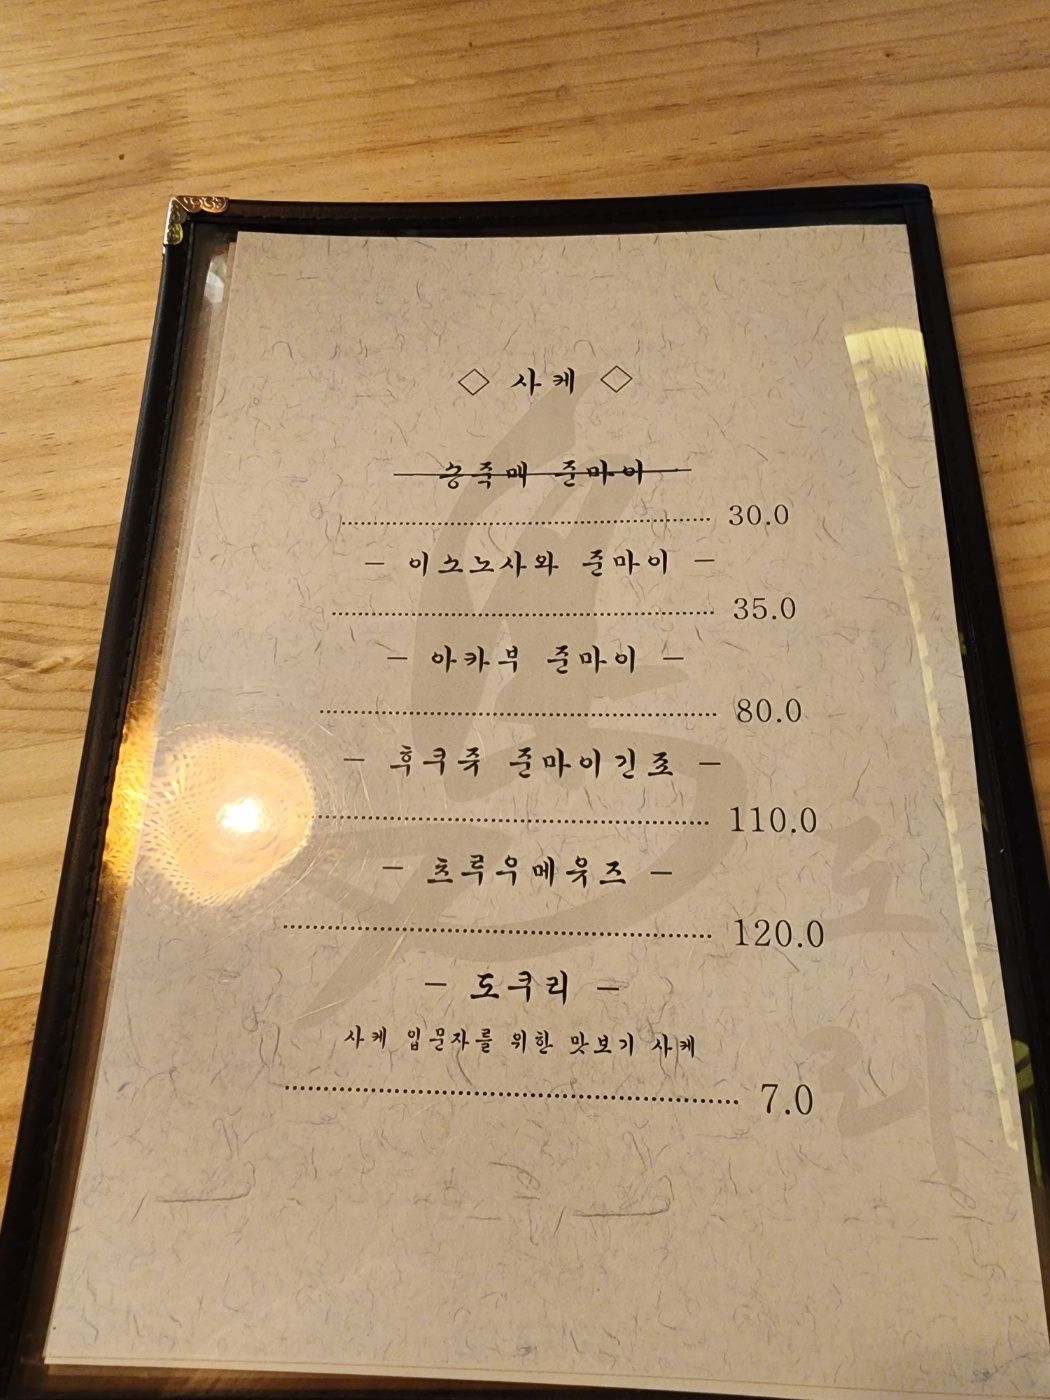 ◇ 사케 ◇
송죽매 준마이
30.0
- 이소노사와 준마이 -
35.0
- 아카부 준마이 -
80.0
- 후쿠쥬 준마이긴죠 -
110.0
- 츠루우메유즈 -
120.0
- 도쿠리 -
사케 입문자를 위한 맛보기 사케
7.0